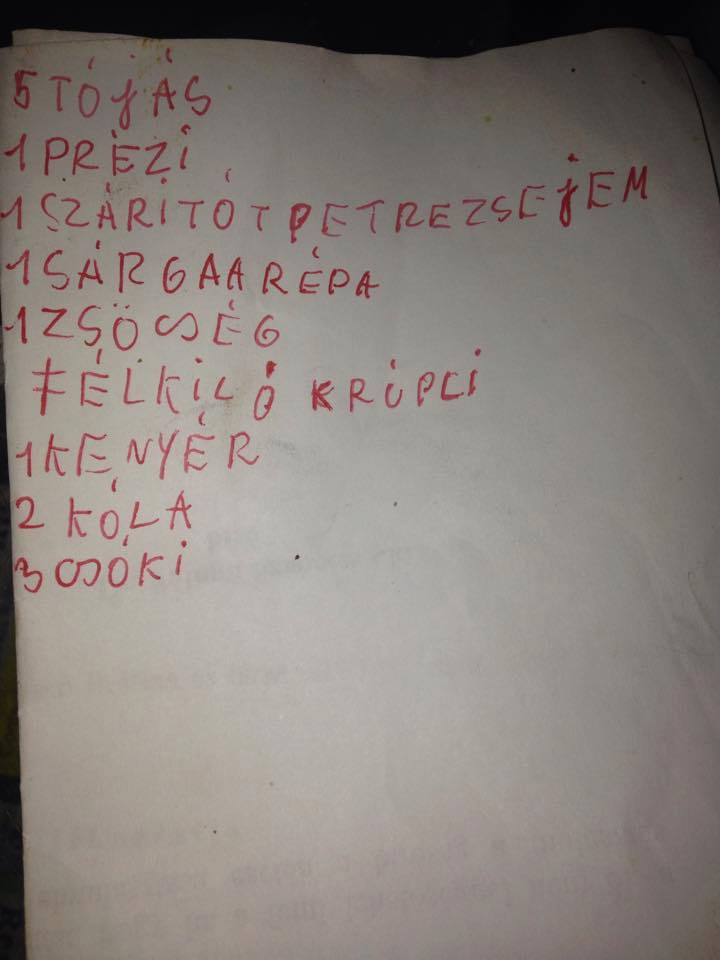 5 TÓJÁS
1 PRÉZI
1 SZÁRÍTÓT PETREZSEJEM
1 SÁRGAARÉPA
1 ZSÖCSÉG
FÉLKILÓ KRÚPLI
1 KENYÉR
2 KÓLA
3 CSÓKI